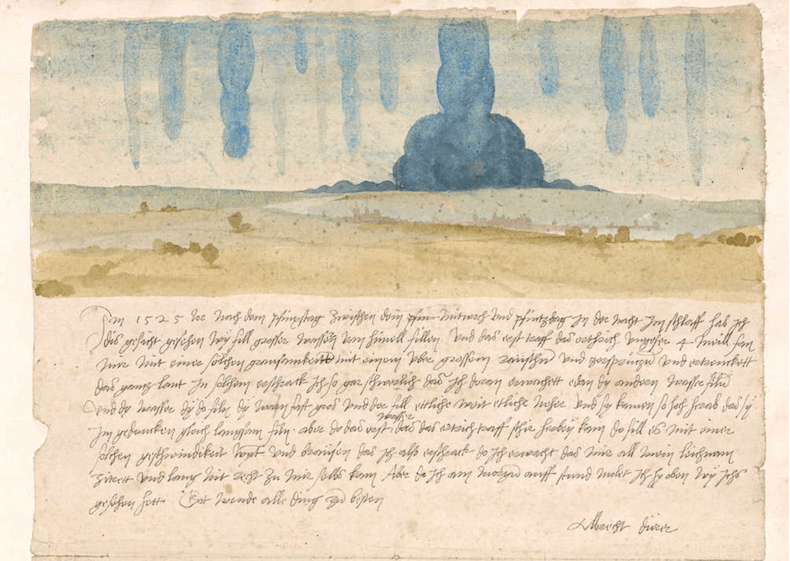 Im 1525 Jor nach dem pfinxstag zwischen dem Mitwoch und pfintzdag in der nacht im schlaff hab ich
dis gesicht gesehen wy fill grosser wassern vom himell fillen Und das erst traff das erthrich ungefer 4 meill fan
mir mit einer solchen grausamkeitt mit einem uber grossem raüschn und zersprützn und ertrenckett
das gantz lant In solchem erschrack ich so gar schwerlich das ich doran erwachett e dan dy andern wasser filn
Und dy wasser dy do filn dy warn fast gros und der fill ettliche weit etliche neher und sy kamen so hoch herab das sy
im gedancken gleich langsam filn. aber do das erst wasser das das ertrich traff schir herbey kam do fill es mit einer
solchen geschwindikeit wynt und braüsen das ich also erschrack do ich erwacht das mir all mein leichnam
zitrett und lang nit recht zu mir selbs kam Aber do ich am morgn auff stund molet ich hie oben wy ichs
gesehen hett. Got wende alle ding zu besten
Albrecht dürer